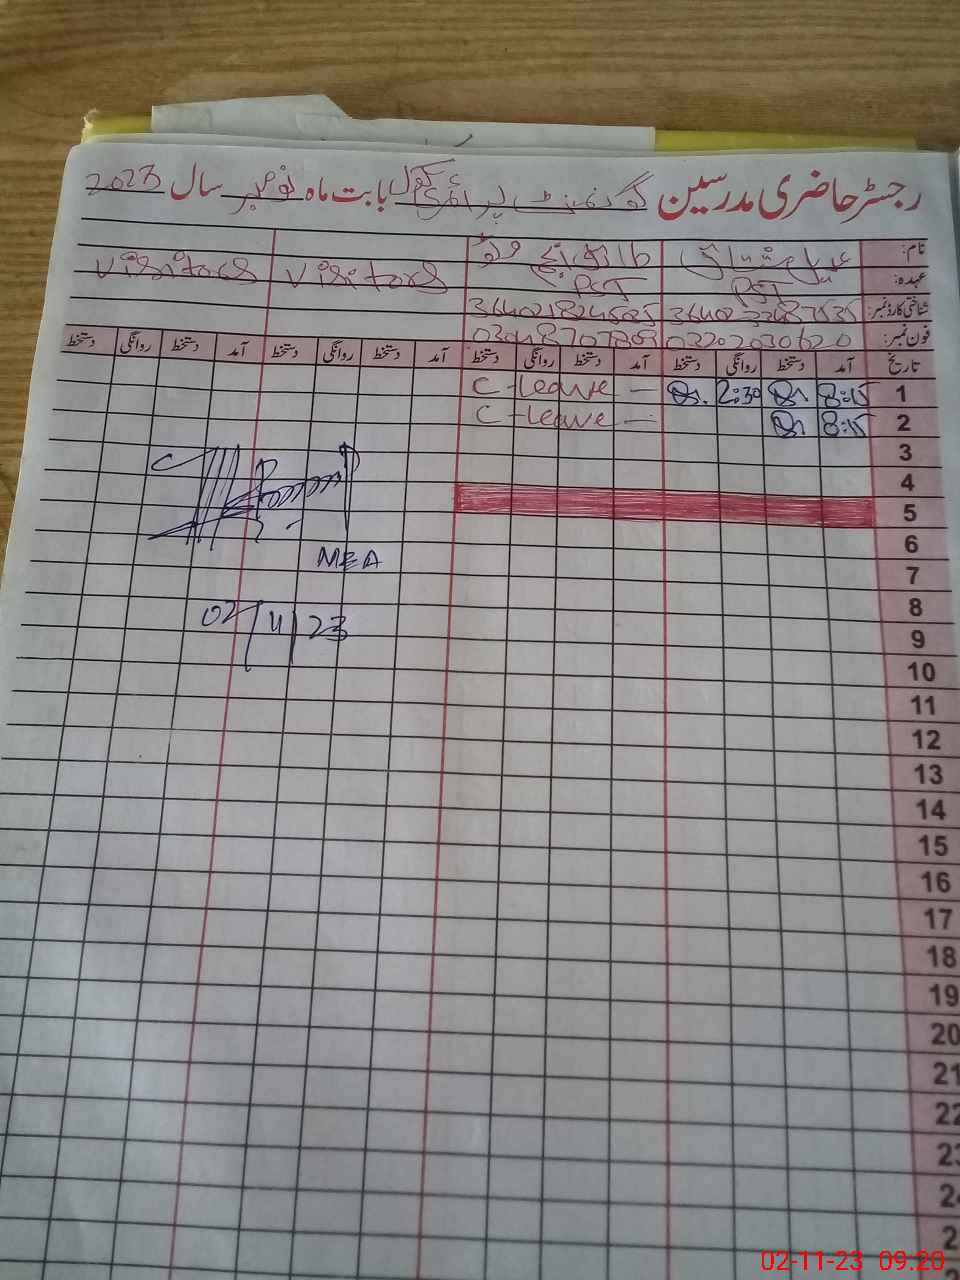 رجسٹر حاضری مدرسین گورنمنٹ پرائمری سکول بابت ماہ نومبر سال 2023
نام:
عہدہ: PST PST visitors visitors
شناختی کارڈ نمبر:
فون نمبر: 03202030620
تاریخ آمد دستخط روانگی دستخط آمد دستخط روانگی دستخط آمد دستخط روانگی دستخط آمد دستخط روانگی دستخط
1 8:15 2:30 C-leave —
2 8:15 C-leave —
3
4
5
6
MEA
7
8
02/11/23
9
10
11
12
13
14
15
16
17
18
19
20
21
22
23
24
02-11-23 09:20